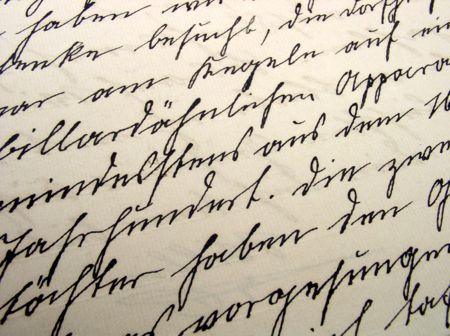 haben wi
enke besucht, die
war am Kegeln auf ein
billardähnlichen Appara
mindestens aus dem 16
Jahrhundert. Die zwe
töchter haben den
vorgesungen